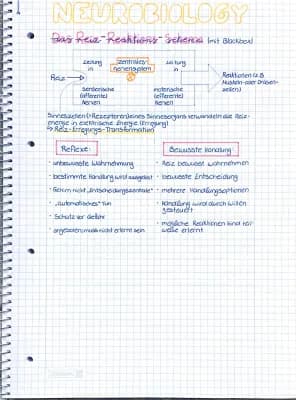 NEUROBIOLOGY
Das Reiz-Reaktions-Schema (mit Blackbox)
Leitung in
zentrales Nervensystem
Leitung in
Reiz
Reaktionen (z.B. Muskeln oder Drüsenzellen)
sensorische (afferente) Nerven
motorische (efferente) Nerven
Sinneszellen (= Rezeptoren) eines Sinnesorgans verwandeln die Reiz-
energie in elektrische Energie (Erregung)
→ Reiz-Erregungs-Transformation
Reflexe:
· unbewusste Wahrnehmung
· bestimmte Handlung wird ausgelöst
· Gehirn nicht „Entscheidungszentrale"
· „automatisches" Tun
· Schutz vor Gefahr
· angeboren, muss nicht erlernt sein
Bewusste Handlung:
· Reiz bewusst wahrnehmen
· bewusste Entscheidung
· mehrere Handlungsoptionen
· Handlung wird durch Willen
gesteuert
· mögliche Reaktionen sind teil-
weise erlernt